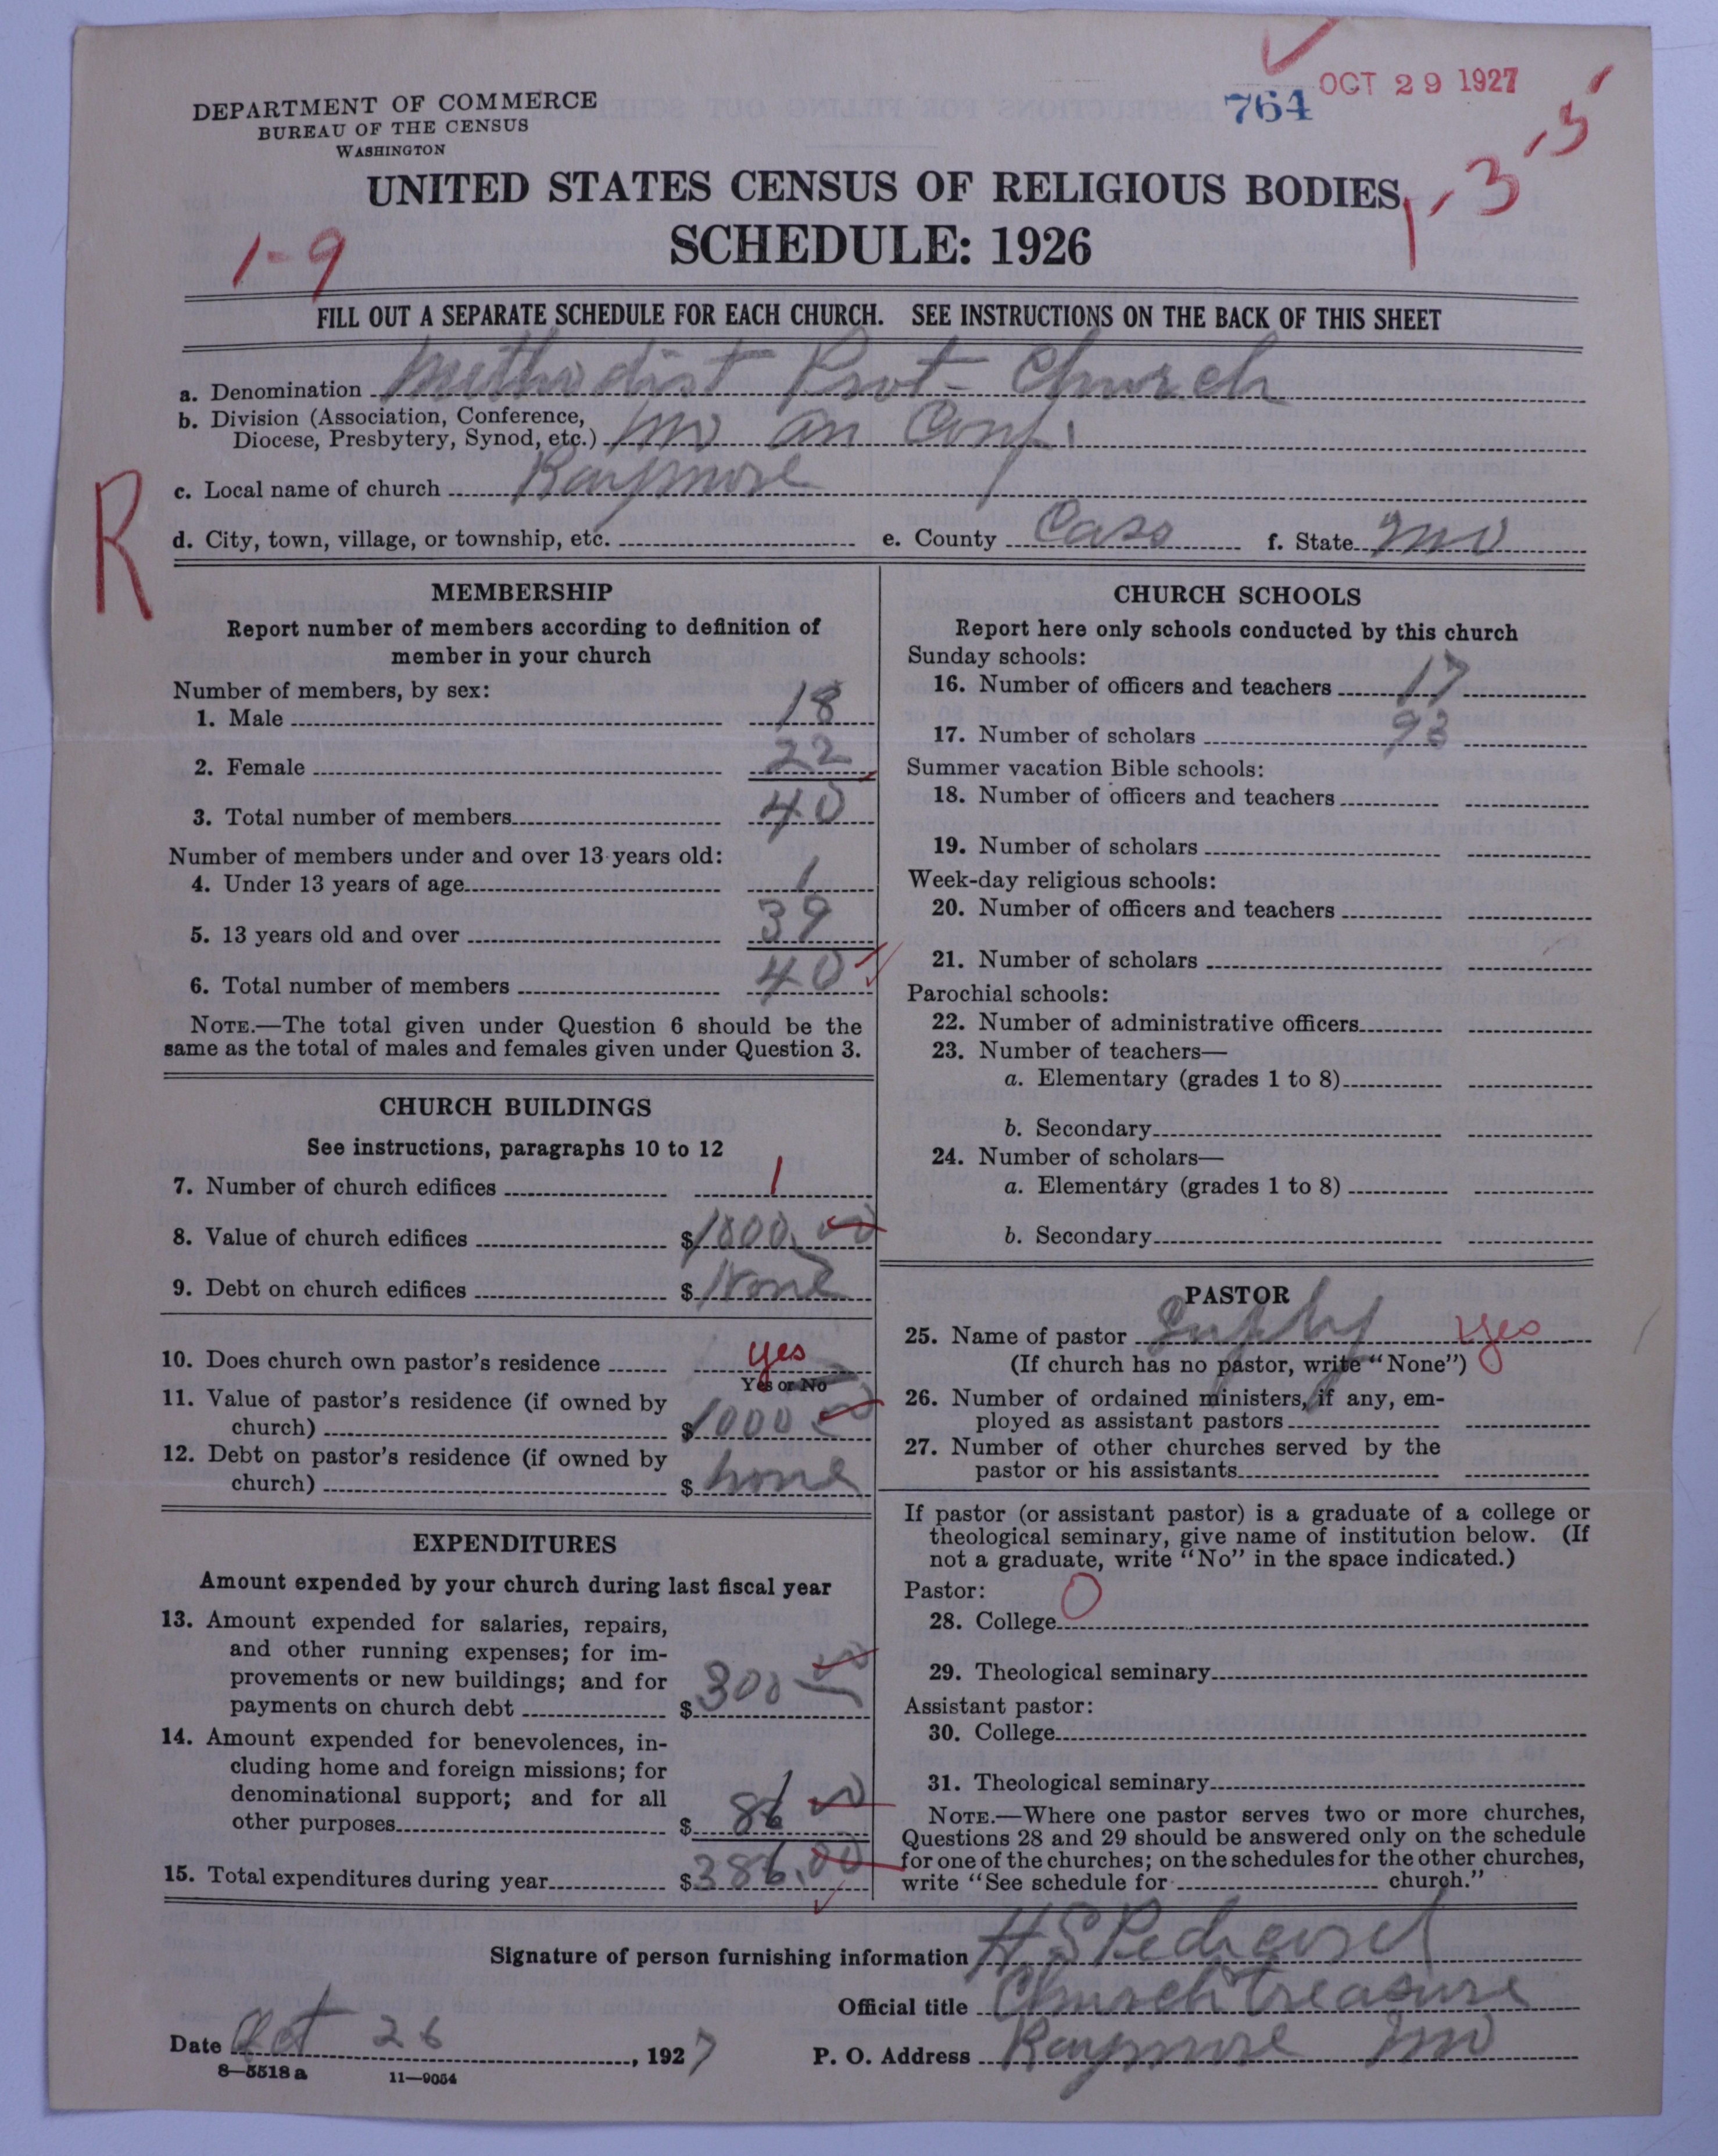 OCT 29 1927
764
DEPARTMENT OF COMMERCE
BUREAU OF THE CENSUS
WASHINGTON
1, 3, 5
UNITED STATES CENSUS OF RELIGIOUS BODIES
SCHEDULE: 1926
1-9
FILL OUT A SEPARATE SCHEDULE FOR EACH CHURCH. SEE INSTRUCTIONS ON THE BACK OF THIS SHEET
a. Denomination Methodist Prot- Church
b. Division (Association, Conference,
Diocese, Presbytery, Synod, etc.) Mo an Conf.
R
c. Local name of church Raymore
d. City, town, village, or township, etc. e. County Cass f. State Mo
MEMBERSHIP
Report number of members according to definition of
member in your church
Number of members, by sex:
1. Male 18
2. Female 22
3. Total number of members 40
Number of members under and over 13 years old:
4. Under 13 years of age 1
5. 13 years old and over 39
6. Total number of members 40
NOTE.—The total given under Question 6 should be the
same as the total of males and females given under Question 3.
CHURCH BUILDINGS
See instructions, paragraphs 10 to 12
7. Number of church edifices 1
8. Value of church edifices $1800.00
9. Debt on church edifices $None
10. Does church own pastor's residence yes
Yes or No
11. Value of pastor's residence (if owned by
church) $1000 00
12. Debt on pastor's residence (if owned by
church) $none
EXPENDITURES
Amount expended by your church during last fiscal year
13. Amount expended for salaries, repairs,
and other running expenses; for im-
provements or new buildings; and for
payments on church debt $300 00
14. Amount expended for benevolences, in-
cluding home and foreign missions; for
denominational support; and for all
other purposes $86 00
15. Total expenditures during year $386.00
CHURCH SCHOOLS
Report here only schools conducted by this church
Sunday schools:
16. Number of officers and teachers 17
17. Number of scholars 93
Summer vacation Bible schools:
18. Number of officers and teachers
19. Number of scholars
Week-day religious schools:
20. Number of officers and teachers
21. Number of scholars
Parochial schools:
22. Number of administrative officers
23. Number of teachers—
a. Elementary (grades 1 to 8)
b. Secondary
24. Number of scholars—
a. Elementary (grades 1 to 8)
b. Secondary
PASTOR
25. Name of pastor Suply yes
(If church has no pastor, write "None")
26. Number of ordained ministers, if any, em-
ployed as assistant pastors
27. Number of other churches served by the
pastor or his assistants
If pastor (or assistant pastor) is a graduate of a college or
theological seminary, give name of institution below. (If
not a graduate, write "No" in the space indicated.)
Pastor:
28. College O
29. Theological seminary
Assistant pastor:
30. College
31. Theological seminary
NOTE.—Where one pastor serves two or more churches,
Questions 28 and 29 should be answered only on the schedule
for one of the churches; on the schedules for the other churches,
write "See schedule for church."
Signature of person furnishing information H S
Official title Church treasure
Date Oct 26, 1927 P. O. Address Raymore Mo
8—5518 a 11—9054